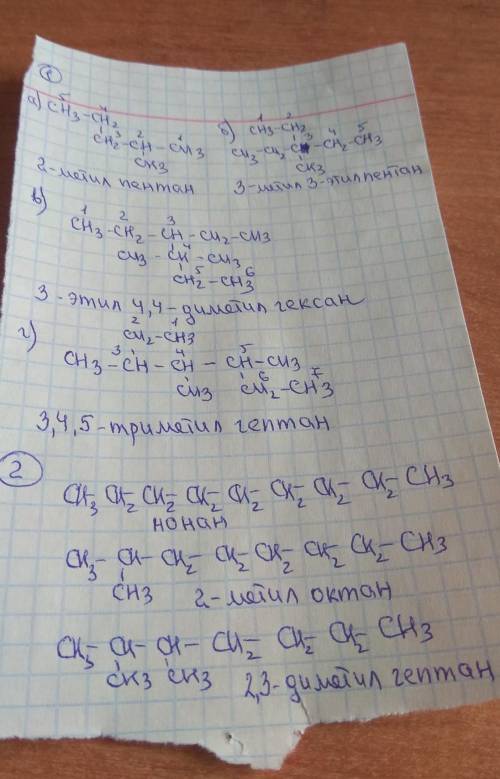 1
5 4
а) CH3-CH2 б) 1 2
CH3-CH2
3 2 1
CH2-CH-CH3 CH3-CH2-C-CH2-CH3
3 4 5
CH3 CH3
2-метил пентан 3-метил 3-этилпентан
в)
1 2 3
CH3-CH2-CH-CH2-CH3
4
CH3-CH-CH3
5 6
CH2-CH3
3-этил 4,4-диметил гексан
2 1
г) CH2-CH3
3 4 5
CH3-CH-CH-CH-CH3
6 7
CH3 CH2-CH3
3,4,5-триметил гептан
2
CH3-CH2-CH2-CH2-CH2-CH2-CH2-CH2-CH3
нонан
CH3-CH-CH2-CH2-CH2-CH2-CH2-CH3
CH3 2-метил октан
CH3-CH-CH-CH2-CH2-CH2-CH3
CH3 CH3 2,3-диметил гептан